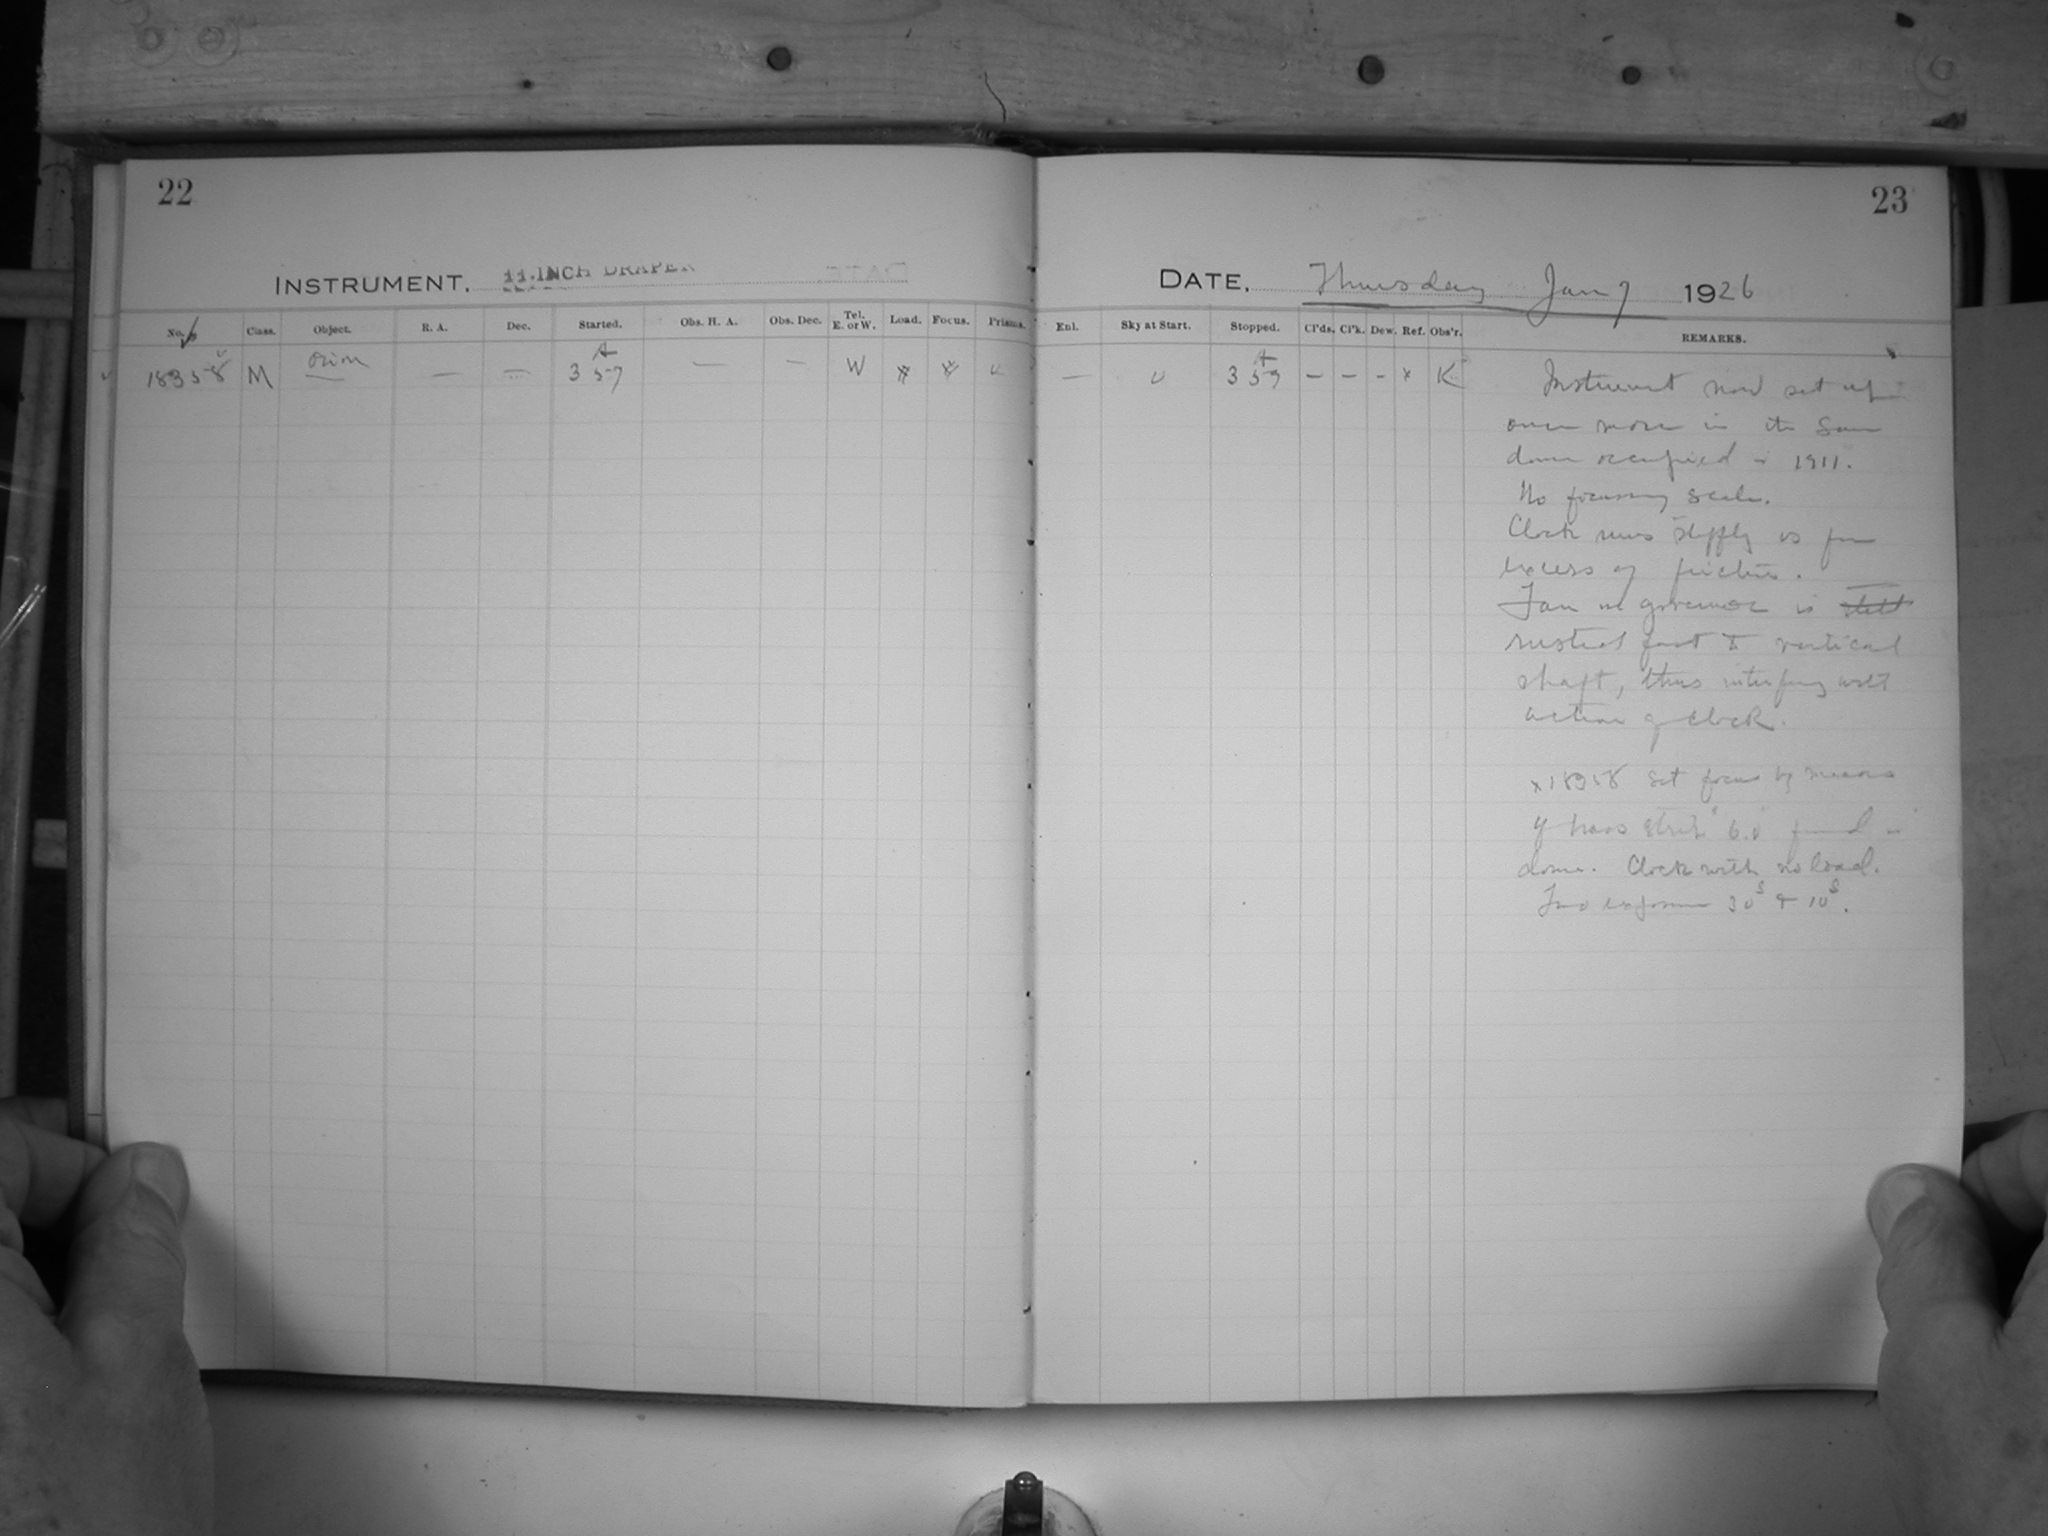 22
23
INSTRUMENT. 11-INCH DRAPER
DATE, Thursday Jan 7 1926
No. Class. Object. R. A. Dec. Started. Obs. H. A. Obs. Dec. Tel. E. or W. Load. Focus. Prisms. Enl. Sky at Start. Stopped. Cl'ds. Cl'k. Dew. Ref. Obs'r. REMARKS.
18958 M Orion — — 3 57 — — W — 3 59 – – – x K
Instrument now set up
once more in the same
dome occupied in 1911.
No focussing scale.
Clock runs stiffly as from
excess of friction.
Fan on governor is still
rusted fast to vertical
shaft, thus interfering with
action of clock.
x18958 Set focus by means
of brass strip "6.0" found in
dome. Clock with no load.
Two exposures 30s & 10s.